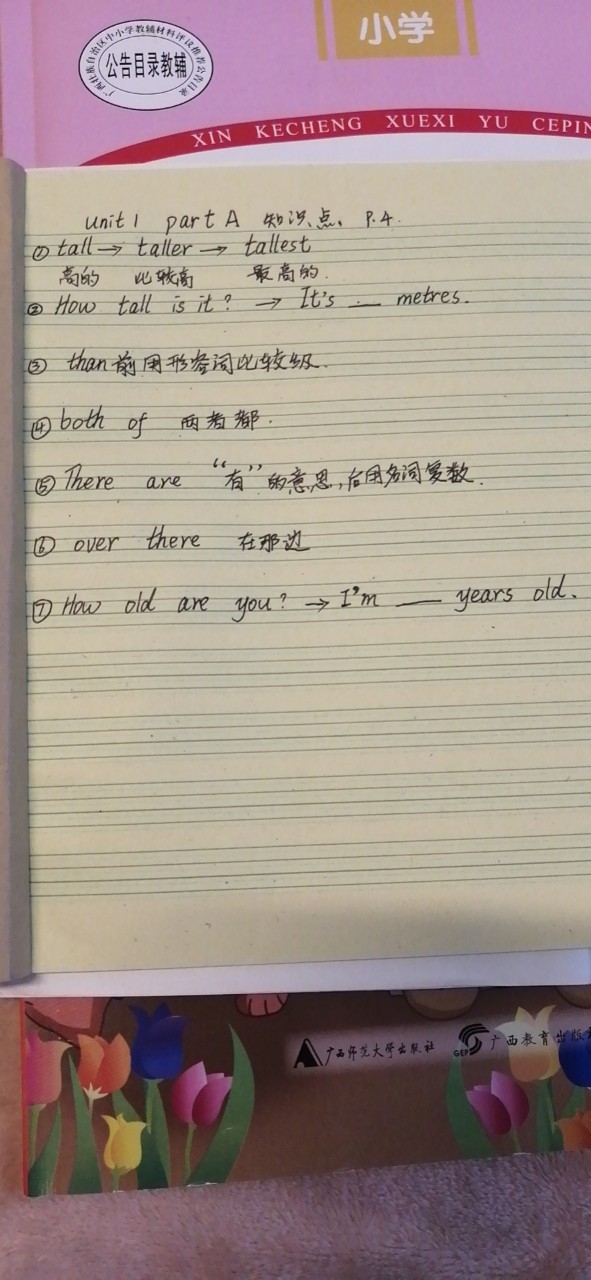 小学
广西壮族自治区中小学教辅材料评议推荐公告目录
公告目录教辅
XIN KECHENG XUEXI YU CEPIN
unit 1 part A 知识点、P.4.
① tall → taller → tallest
高的 比较高 最高的.
② How tall is it? → It's __ metres.
③ than前用形容词比较级.
④ both of 两者都.
⑤ There are “有”的意思,后用名词复数.
⑥ over there 在那边
⑦ How old are you? → I'm __ years old、
广西师范大学出版社
GEP 广西教育出版社